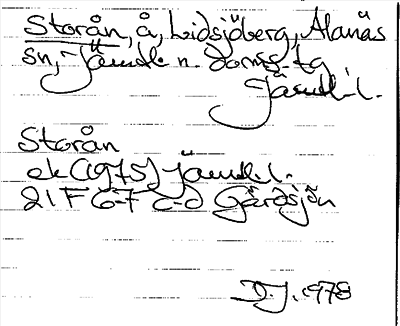 Storån, å, Lidsjöberg, Alanäs
sn, Jämtl. n. doms. tg
Jämtl. l.
Storån
ek (1975) Jämtl. l.
21 F 6-7 c-d Gårdsjön
D.J. 1978